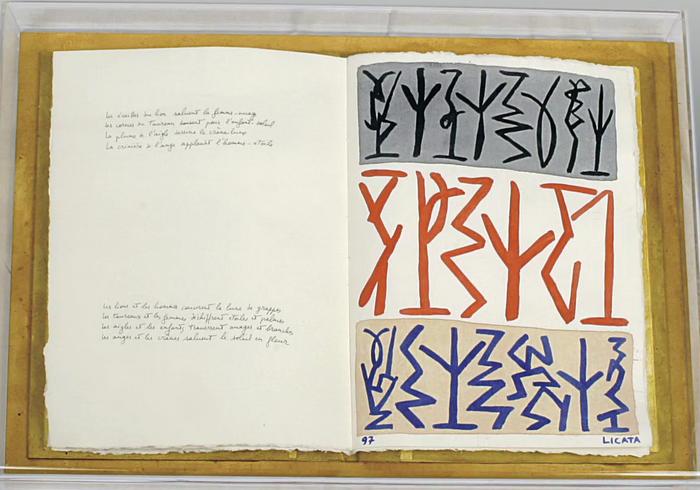 Les oreilles du lion saluent la femme-nuage
Les cornes du taureau dansent pour l'enfant-soleil
La plume de l'aigle le crâne-lune
La crinière de l'ange applaudit l'homme-étoile
Les lions et les hommes couvrent la lune de grappes
Les taureaux et les femmes déchiffrent étoiles et palmes
Les aigles et les enfants traversent nuages et branches
Les anges et les crânes saluent le soleil en fleur
97
LICATA